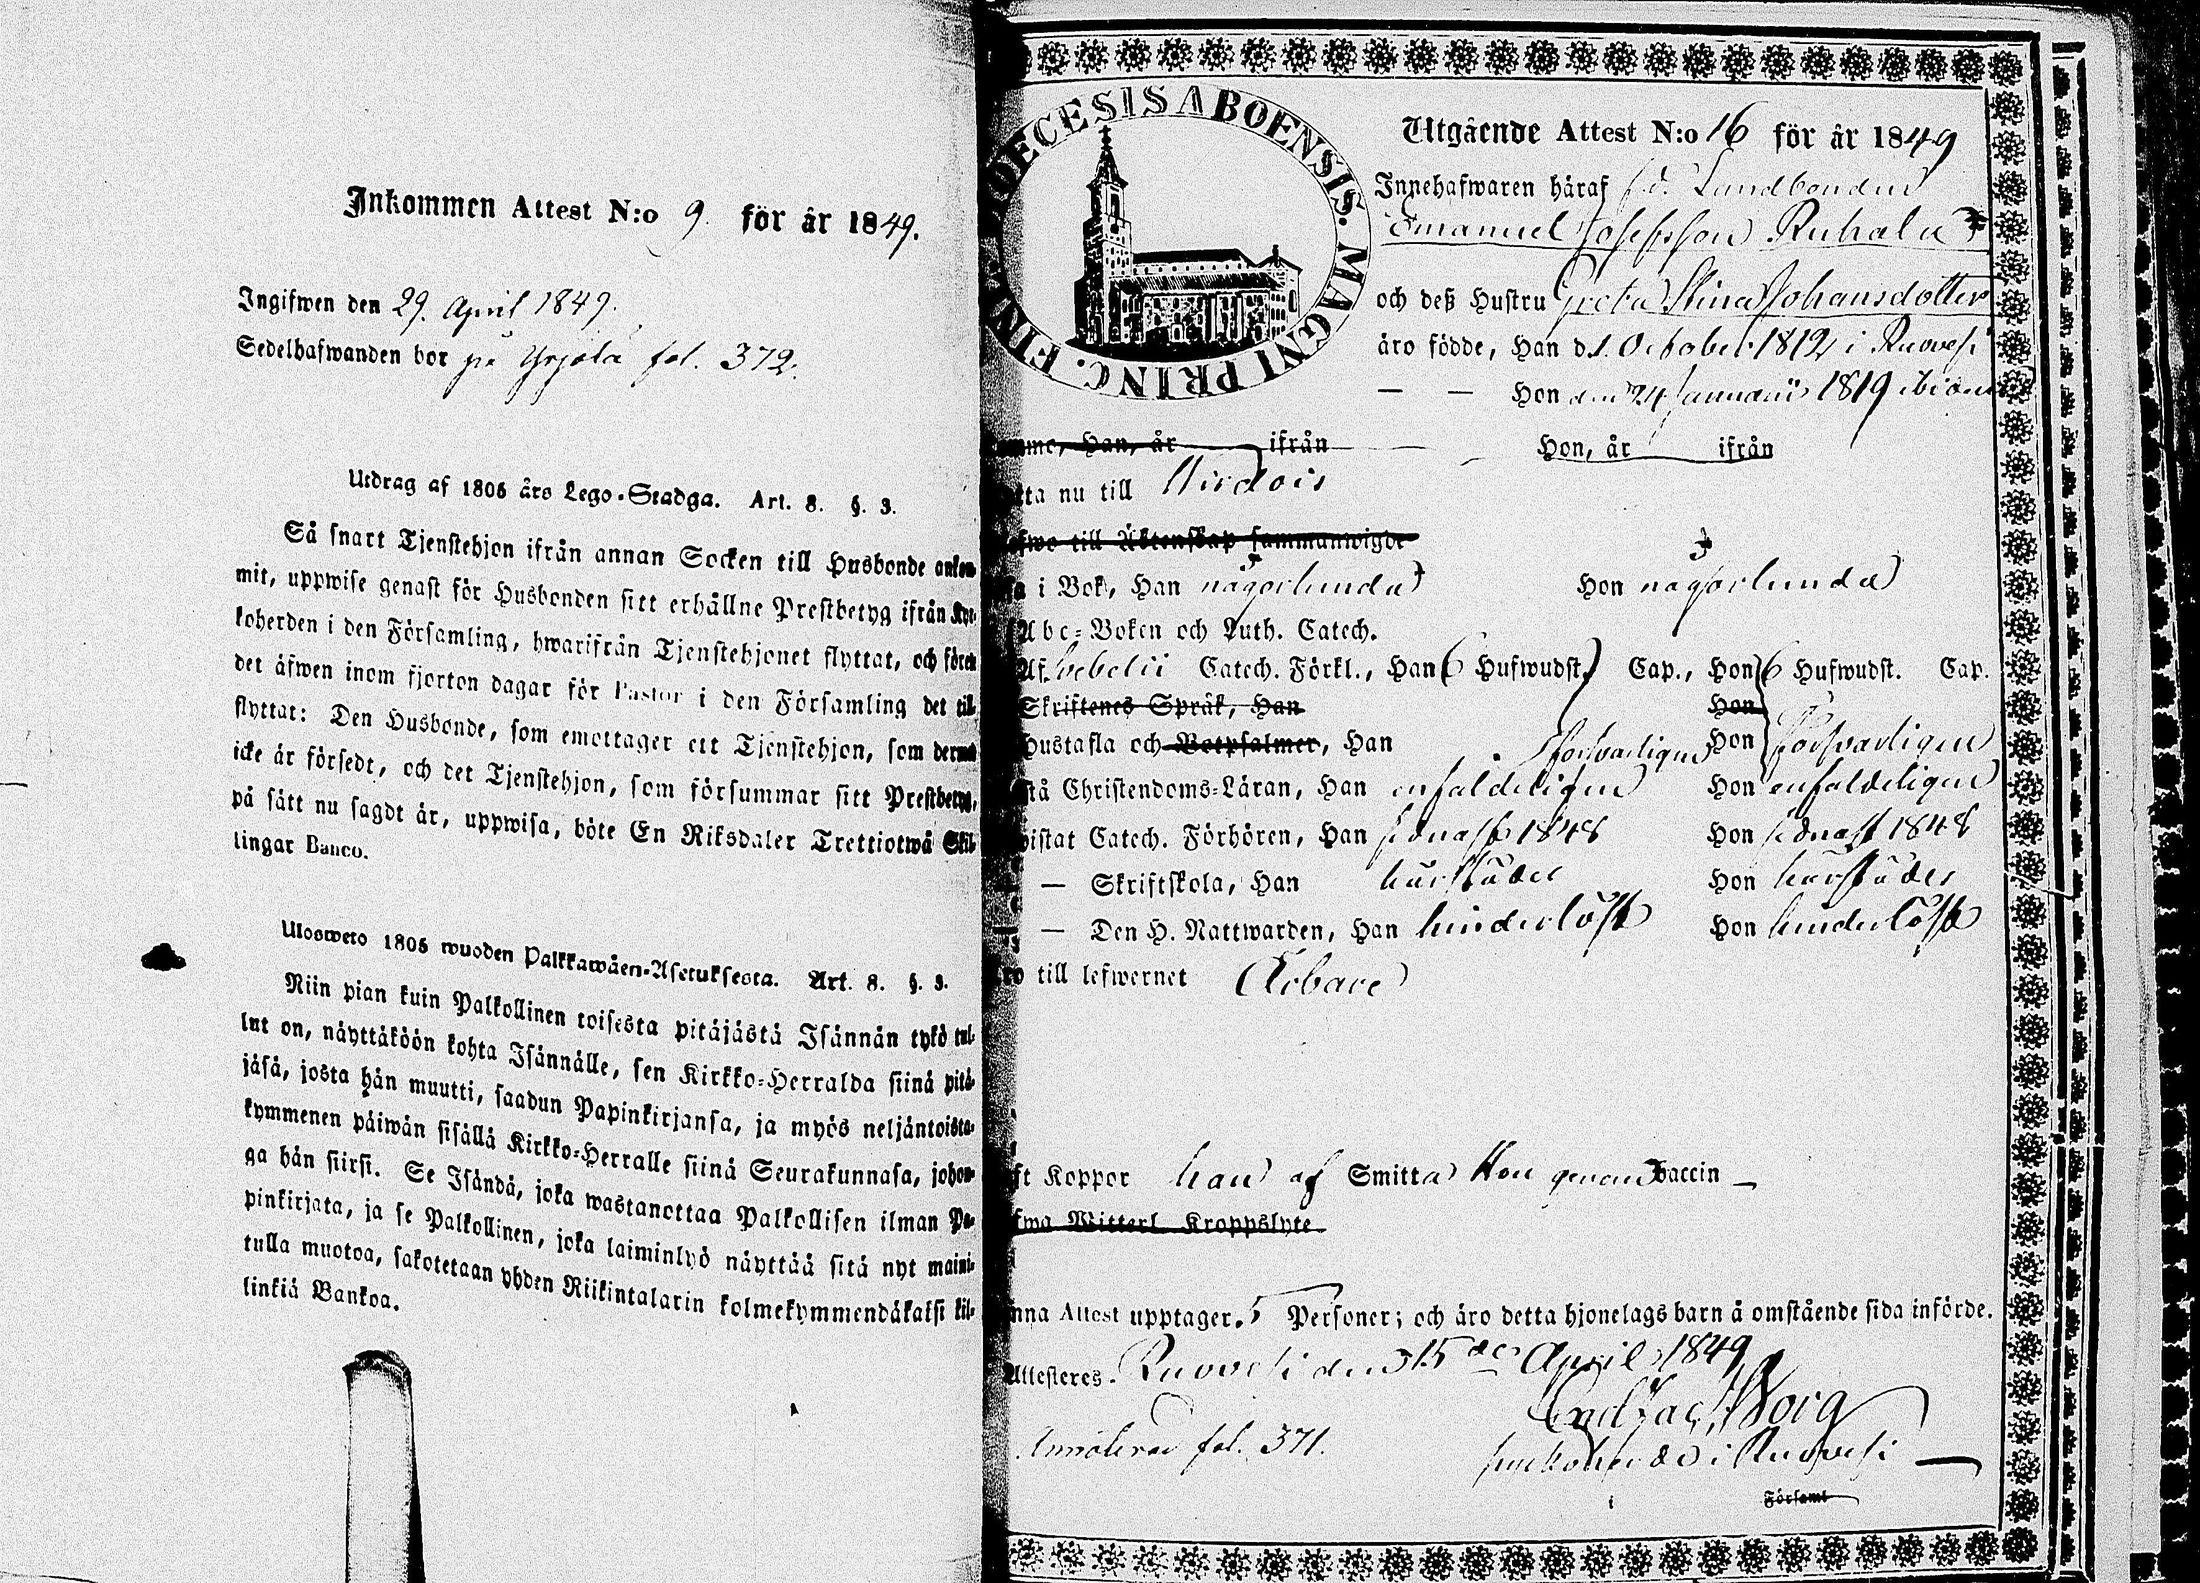 Inkommen Attest N:o 9. för år 1849.
Ingifwen den 29. April 1849.
Sedelhafwanden bor på Yrjölä fol. 372.
Utdrag af 1805 års Lego-Stadga. Art. 8. §. 3.
Så snart Tjenstehjon ifrån annan Socken till Husbonde ankom-
mit, uppwise genast för Husbonden sitt erhållne Prestbetyg ifrån Kyr-
koherden i den Församling, hwarifrån Tjenstehjonet flyttat, och förete
det äfwen inom fjorton dagar för Pastor i den Församling det till-
flyttat: Den Husbonde, som emottager ett Tjenstehjon, som dermed
icke är försedt, och det Tjenstehjon, som försummar sitt Prestbetyg,
på sätt nu sagdt är, uppwisa, böte En Riksdaler Trettiotwå Skil-
lingar Banco.
Ulosweto 1805 wuoden Palkkawäen-Asetuksesta. Art. 8. §. 3.
Niin pian kuin Palkollinen toisesta pitäjästä Isännän tykö tul-
lut on, näyttäköön kohta Isännälle, sen Kirkko-Herralda siinä pitä-
jäsä, josta hän muutti, saadun Papinkirjansa, ja myös neljäntoista-
kymmenen päiwän sisällä Kirkko-Herralle siinä Seurakunnasa, johon-
ga hän siirsi. Se Isändä, joka wastanottaa Palkollisen ilman Pa-
pinkirjata, ja se Palkollinen, joka laiminlyö näyttää sitä nyt maini-
tulla muotoa, sakotetaan yhden Riikintalarin kolmekymmendäkaksi kil-
linkiä Bankoa.
DIOECESIS ABOENSIS. MAGNI PRINC. FINL.
Utgående Attest N:o 16 för år 1849
Innehafwaren häraf f.d. Landbonden
Emanuel Josefsson Ruhala
och deß Hustru Greta Stina Johansdotter
äro födde, Han d. 1. October 1812 i Ruovesi
— — Hon den 24 Januarii 1819 ibidem
Han, år ifrån Hon, år ifrån
nu till Wirdois
till Äktenskap sammanwigde
i Bok, Han någorlunda Hon någorlunda
Abc-Boken och Luth. Catech.
Af Svebelii Catech. Förkl., Han 6 Hufwudst. Cap., Hon 6 Hufwudst. Cap.
Skriftenes Språk, Han Hon
Hustafla och Botpsalmer, Han försvarligen Hon försvarligen
Christendoms-Läran, Han enfaldeligen Hon enfaldeligen
Catech. Förhören, Han sednast 1848 Hon sednast 1848
— Skriftskola, Han Hon
— Den H. Nattwarden, Han hinderlöst Hon hinderlöst
till lefwernet Ärbare
Koppor han af Smitta Hon genom Vaccin —
Witterl. Kroppslyte
Attest upptager 5 Personer; och äro detta hjonelags barn å omstående sida införde.
Attesteres. Ruovesi den 15de April 1849
Borg
fol. 371. kyrkoherde i Ruovesi —
i Församl.